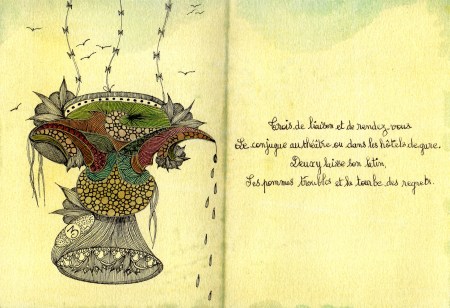 3
Trois de liaison et de rendez-vous
Se conjugue au théâtre ou dans les hôtels de gare.
Deux y laisse son latin,
Les pommes troubles et la tourbe des regrets.